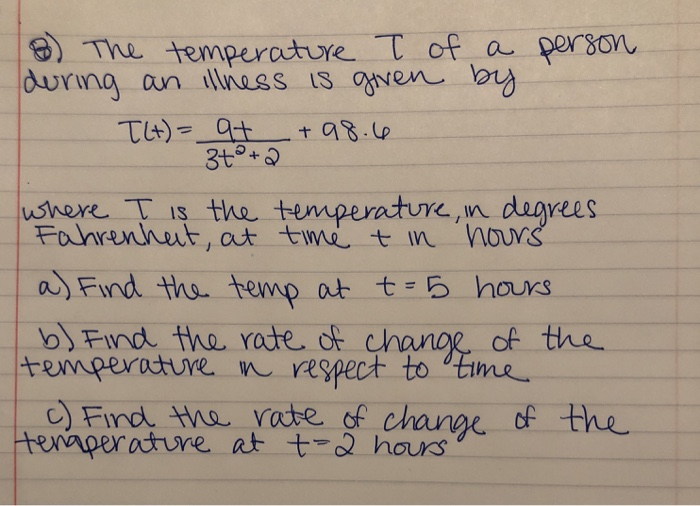 8) The temperature T of a person
during an illness is given by
T(t) = 9t + 98.6
3t²+2
where T is the temperature, in degrees
Fahrenheit, at time t in hours
a) Find the temp at t = 5 hours
b) Find the rate of change of the
temperature in respect to time
c) Find the rate of change of the
temperature at t=2 hours